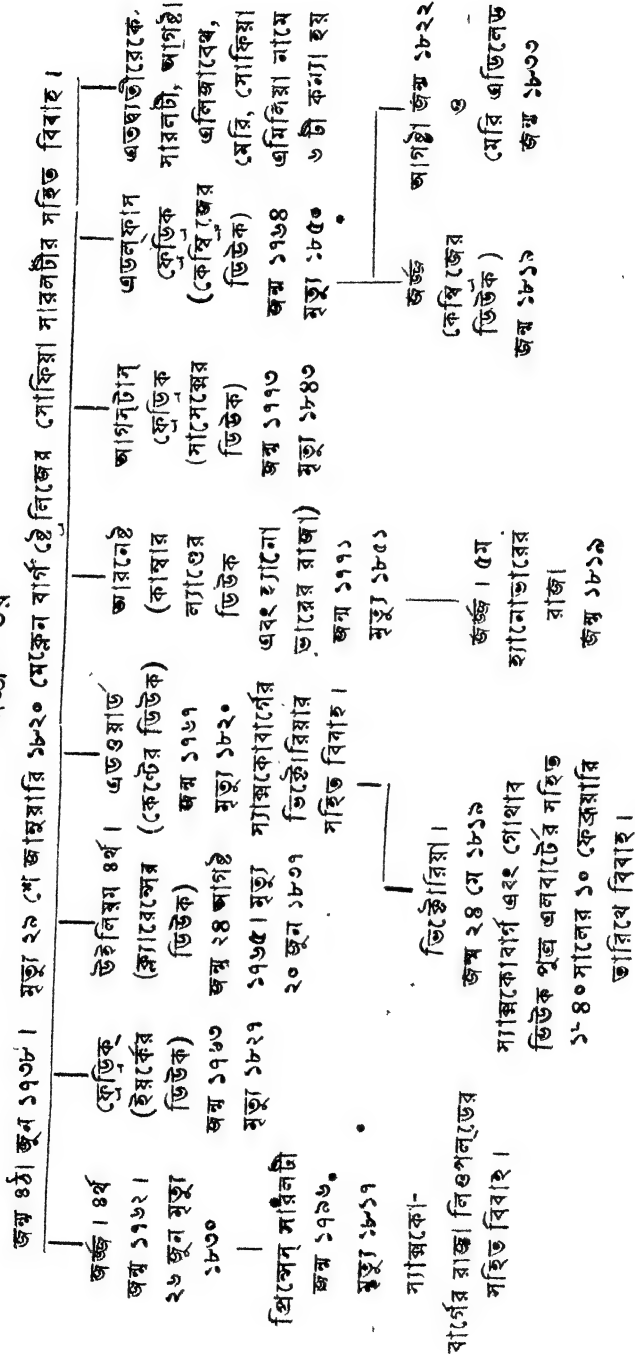 জন্ম ৪ঠা জুন ১৭৩৮। মৃত্যু ২৯ শে জানুয়ারি ১৮২০ মেক্লেন বার্গ ষ্ট্রেলিজের সোফিয়া সারলটীর সহিত বিবাহ।
জর্জ্জ। ৪র্থ
জন্ম ১৭৬২।
২৬ জুন মৃত্যু
১৮৩০
প্রিন্সেস্ সারলটী
জন্ম ১৭৯৬
মৃত্যু ১৮১৭
স্যাক্সকো-
বার্গের রাজা লিওপল্ডের
সহিত বিবাহ।
ফ্রেড্রিক
(ইয়র্কের
ডিউক)
জন্ম ১৭৬৩
মৃত্যু ১৮২৭
উইলিয়ম ৪র্থ।
(ক্ল্যারেন্সের
ডিউক)
জন্ম ২৪ আগষ্ট
১৭৬৫। মৃত্যু
২০ জুন ১৮৩৭
এডওয়ার্ড
(কেণ্টের ডিউক)
জন্ম ১৭৬৭
মৃত্যু ১৮২০
স্যাক্সকোবার্গের
ভিক্টোরিয়ার
সহিত বিবাহ।
ভিক্টোরিয়া।
জন্ম ২৪ মে ১৮১৯
স্যাক্সকোবার্গ এবং গোথার
ডিউক পুত্র এলবার্টের সহিত
১৮৪০ সালের ১০ ফেব্রুয়ারি
তারিখে বিবাহ।
আরনেষ্ট
(কাম্বার
ল্যাণ্ডের
ডিউক
এবং হ্যানো
ভারের রাজা)
জন্ম ১৭৭১
মৃত্যু ১৮৫১
জর্জ্জ। ৫ম
হ্যানোভারের
রাজা
জন্ম ১৮১৯
আগস্টাস্
ফ্রেড্রিক
(সাসেক্সের
ডিউক)
জন্ম ১৭৭৩
মৃত্যু ১৮৪৩
এডলফাস
ফ্রেড্রিক
(কেম্ব্রিজের
ডিউক)
জন্ম ১৭৬৪
মৃত্যু ১৮৫০
জর্জ্জ
কেম্ব্রিজের
ডিউক)
জন্ম ১৮১৯
আগষ্টা জন্ম ১৮২২
ও
মেরি এডিলেড
জন্ম ১৮৩৩
এতদ্ব্যতীরেকে
সারলটী, আগষ্টা
এলিজাবেথ,
মেরি, সোফিয়া
এমিলিয়া নামে
৬ টী কন্যা হয়